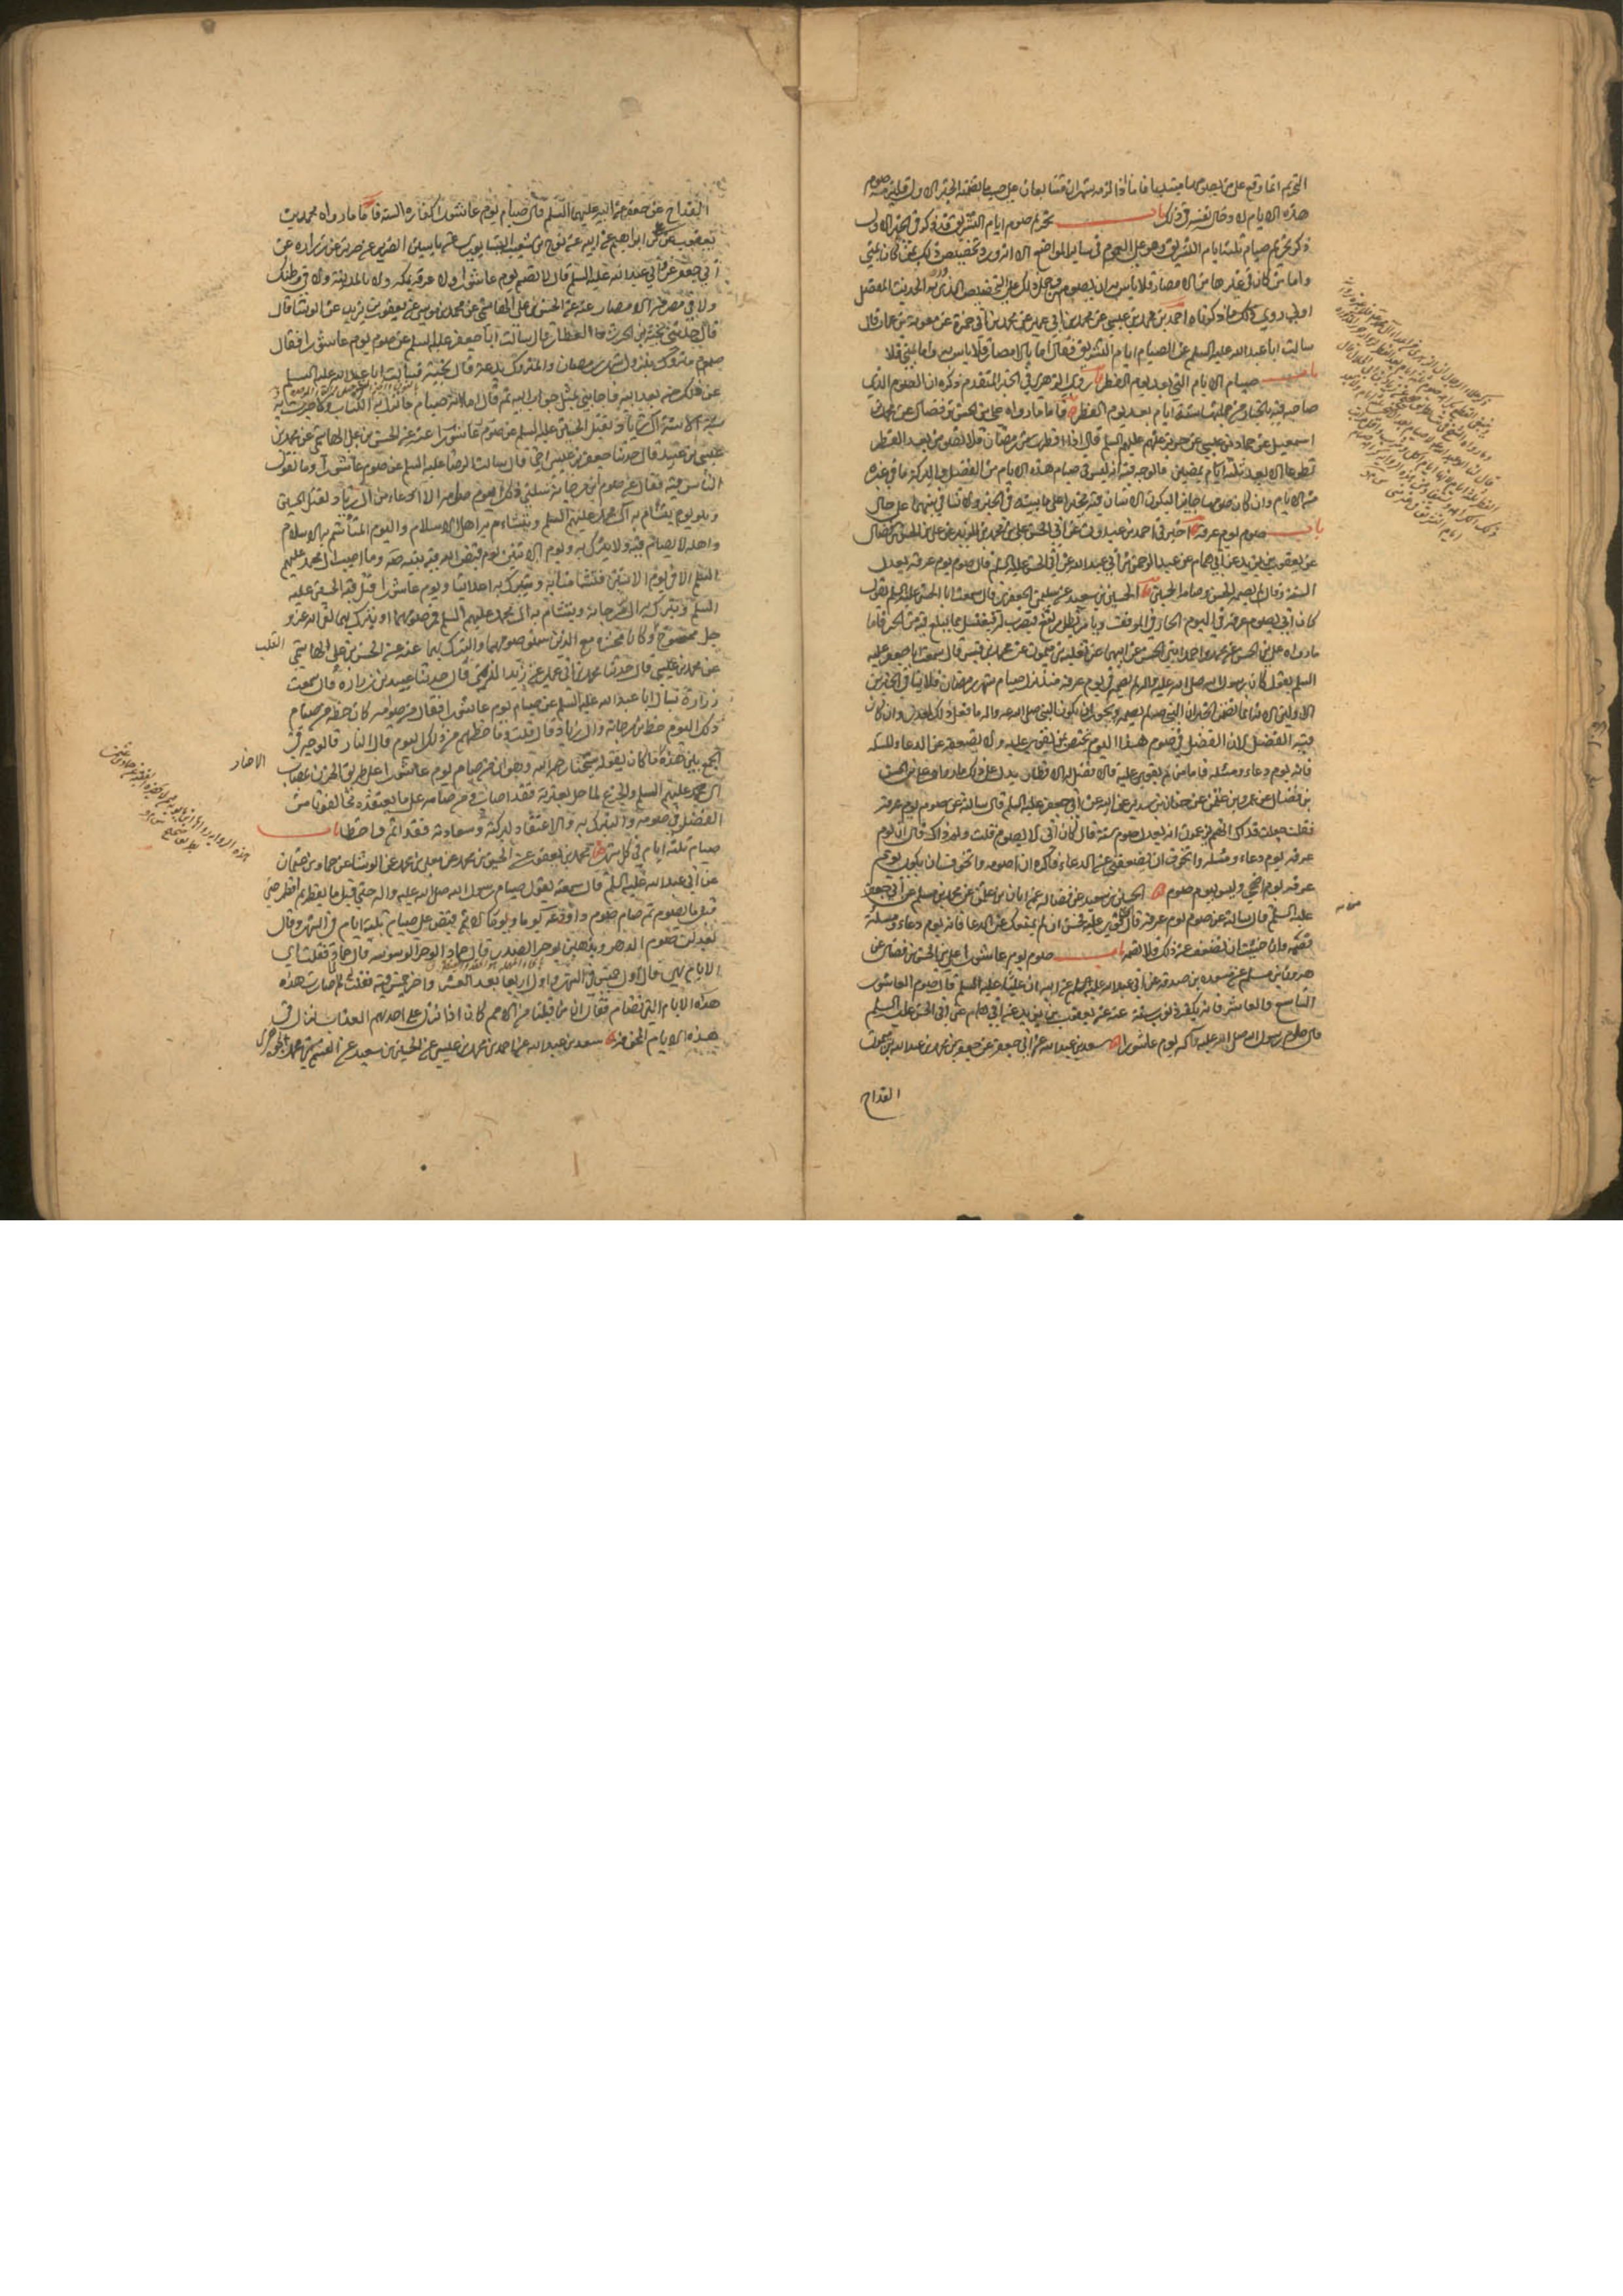 التحريم انما وقع على من يصومها مبتديا فاما اذا لزمه شهران متتابعان على حسب ما تضمنه الخبر الاول فيلزمه صوم
هذه الايام لادخاله نفسه في ذلك باب تحريم صوم ايام التشريق قد ذكر في الخبر الاول
ذكر تحريم صيام ثلثة ايام التشريق وهو على العموم في ساير المواضع الا انه ورد تخصيص ذلك بمن كان بمنى
واما من كان في غيرها من الامصار فلا باس به ان يصوم
احمد بن محمد بن عيسى عن محمد بن ابي عمير عن محمد بن ابي حمزة عن معوية بن عمار قال
سالت ابا عبد الله عليه السلم عن الصيام ايام التشريق فقال اما بالامصار فلا باس به واما بمنى فلا
باب صيام الايام التي بعد يوم الفطر روى الزهري في الخبر المتقدم ذكره ان الصوم الذي
صاحبه فيه بالخيار من جملته ستة ايام بعد يوم الفطر فاما ما رواه علي بن الحسن بن فضال عن محمد بن
اسمعيل عن حماد بن عيسى عن حريز عنهم عليهم السلم قال اذا افطرت من رمضان فلا تصومن بعد الفطر
تطوعا الا بعد ثلثة ايام يمضين فالوجه فيه انه ليس في صيام هذه الايام من الفضل والبركة ما في غيره
من الايام وان كان صومها جايزا ليكون الانسان فيه مخيرا على ما بيناه في الخبر ولا تنافي بينهما على حال
باب صوم يوم عرفة اخبرني احمد بن عبدون عن ابي الحسن علي بن محمد بن الزبير عن علي بن الحسن بن فضال
عن يعقوب بن يزيد عن ابي همام عن عبد الرحمن بن ابي عبد الله عن ابي الحسن عليه السلم قال صوم يوم عرفة يعدل
السنة وقال لم يصمه الحسن وصامه الحسين الحسين بن سعيد عن سليمن الجعفري قال سمعت ابا الحسن عليه السلم يقول
كان ابي يصوم عرفة في اليوم الحار في الموقف ويامر بظل مرتفع فيضرب له فيغتسل مما يبلغ منه من الحر فاما
ما رواه علي بن الحسن عن محمد واحمد ابني الحسن عن ابيهما عن ثعلبة بن ميمون عن محمد بن قيس قال سمعت ابا جعفر عليه
السلم يقول كان رسول الله صلى الله عليه واله لم يصم في يوم عرفة منذ نزل صيام شهر رمضان فلا ينافي الخبرين
الاولين
فيه الفضل لان الفضل في صوم هذا اليوم يختص بمن يقوى عليه ولا يضعفه عن الدعاء والمسئلة
فانه يوم دعاء ومسئلة فاما من لم يقوى عليه فالافضل له الافطار يدل على ذلك ما رواه علي بن الحسن
بن فضال عن عمرو بن عثمن عن حنان بن سدير عن ابيه عن ابي جعفر عليه السلم قال سالته عن صومه يوم عرفة
فقلت جعلت فداك انهم يزعمون انه يعدل صوم سنة قال كان ابي لا يصومه قلت ولم ذاك قال ان يوم
عرفة يوم دعاء ومسئلة واتخوف ان يضعفني عن الدعاء فاكره ان اصومه واتخوف ان يكون يوم
عرفة يوم اضحى وليس بيوم صوم الحسين بن سعيد عن فضالة عن ابان بن عثمن عن محمد بن مسلم عن ابي جعفر
عليه السلم قال سالته عن صوم يوم عرفة قال من قوي عليه فحسن ان لم يمنعك عن الدعا فانه يوم دعاء ومسئلة
فصمه وان خشيت ان تضعف عن ذلك فلا تصمه باب صوم يوم عاشورا علي بن الحسن بن فضال عن
هرون بن مسلم عن مسعدة بن صدقة عن ابي عبد الله عليه السلم عن ابيه ان عليا عليه السلم قال صوموا العاشورا
التاسع والعاشر فانه يكفر ذنوب سنة عنه عن يعقوب بن يزيد عن ابي همام عن ابي الحسن عليه السلم
قال صام رسول الله صلى الله عليه واله يوم عاشورا سعد بن عبد الله عن ابي جعفر عن جعفر بن محمد بن عبد الله بن ميمون
القداح
القداح عن جعفر عن ابيه عليهما السلم قال صيام يوم عاشورا كفارة السنة فاما ما رواه محمد بن
يعقوب عن علي بن ابراهيم عن ابيه عن نوح بن شعيب النيسابوري عن ياسين الضرير عن حريز عن زرارة عن
ابي جعفر عن ابي عبد الله عليه السلم قال لا تصم يوم عاشورا ولا عرفة بمكة ولا بالمدينة ولا في وطنك
ولا في مصر من الامصار عنه عن الحسن بن علي الهاشمي عن محمد بن موسى عن يعقوب بن يزيد عن الوشا قال
قال حدثني نجبة بن الحرث العطار قال سالت ابا جعفر عليه السلم عن صوم يوم عاشورا فقال
صوم متروك بنزول شهر رمضان والمتروك بدعة قال نجبة فسالت ابا عبد الله عليه السلم
عن ذلك من بعد ابيه فاجابني بمثل جواب ابيه ثم قال اما انه صيام ما نزل به الكتاب ولا جرت به
سنة الا سنة ال زياد بقتل الحسين عليه السلم عن صوم عاشورا عنه عن الحسن بن علي الهاشمي عن محمد بن
عيسى بن عبيد قال حدثنا جعفر بن عيسى اخي قال سالت الرضا عليه السلم عن صوم عاشورا وما يقول
الناس فيه فقال عن صوم ابن مرجانة تسئلني ذلك يوم صامه الادعياء من ال زياد لقتل الحسين
وهو يوم يتشأم به ال محمد عليهم السلم ويتشاءم به اهل الاسلام واليوم المتشائم به الاسلام
واهله لا يصام فيه ولا يتبرك به ويوم الاثنين يوم قبض الله فيه نبيه وما اصيب ال محمد عليهم
السلم الا في يوم الاثنين فتشأمنا به ويتبرك به اعداؤنا ويوم عاشورا قتل فيه الحسين عليه
السلم وتبرك به ابن مرجانة ويتشأم به ال محمد عليهم السلم فمن صامهما او تبرك بهما لقي الله عز و
جل ممسوخ القلب وكان محشره مع الذين سنوا صومهما والتبرك بهما عنه عن الحسن بن علي الهاشمي
القلب
عن محمد بن عيسى قال حدثنا محمد بن ابي عمير عن زيد النرسي قال حدثنا عبيد بن زرارة قال سمعت
زرارة يسال ابا عبد الله عليه السلم عن صيام يوم عاشورا فقال من صامه كان حظه من صيام
ذلك اليوم حظ ابن مرجانة وال زياد قال قلت وما حظهم من ذلك اليوم قال النار فالوجه في
الجمع بين هذه الاخبار ما كان يقوله شيخنا رحمه الله وهو ان من صام يوم عاشورا على طريق الحزن بمصاب
الاخبار
ال محمد عليهم السلم والجزع لما حل بعترته فقد اصاب ومن صامه على ما يعتقده مخالفونا من
الفضل في صومه والتبرك به والاعتقاد لبركته وسعادته فقد اثم واخطا باب
صيام ثلثة ايام في كل شهر محمد بن يعقوب عن الحسين بن محمد عن معلى بن محمد عن الوشا عن حماد بن عثمان
عن ابي عبد الله عليه السلم قال سمعته يقول صام رسول الله صلى الله عليه واله حتى قيل ما يفطر ثم افطر حتى
قيل ما يصوم ثم صام صوم داود عه يوما ويوما لا ثم قبض على صيام ثلثة ايام في الشهر وقال
يعدلن صوم الدهر ويذهبن بوحر الصدر قال حماد الوحر الوسوسة قال حماد فقلت اي
الايام هي قال اول خميس في الشهر واول اربعا بعد العشر واخر خميس فيه فقلت لم صارت هذه
هذه الايام التي تصام فقال ان من قبلنا من الامم كان اذا نزل على احدهم العذاب نزل في
هذه الايام المخوفة سعد بن عبد الله عن احمد بن محمد بن عيسى عن الحسين بن سعيد عن القسم بن محمد الجوهري